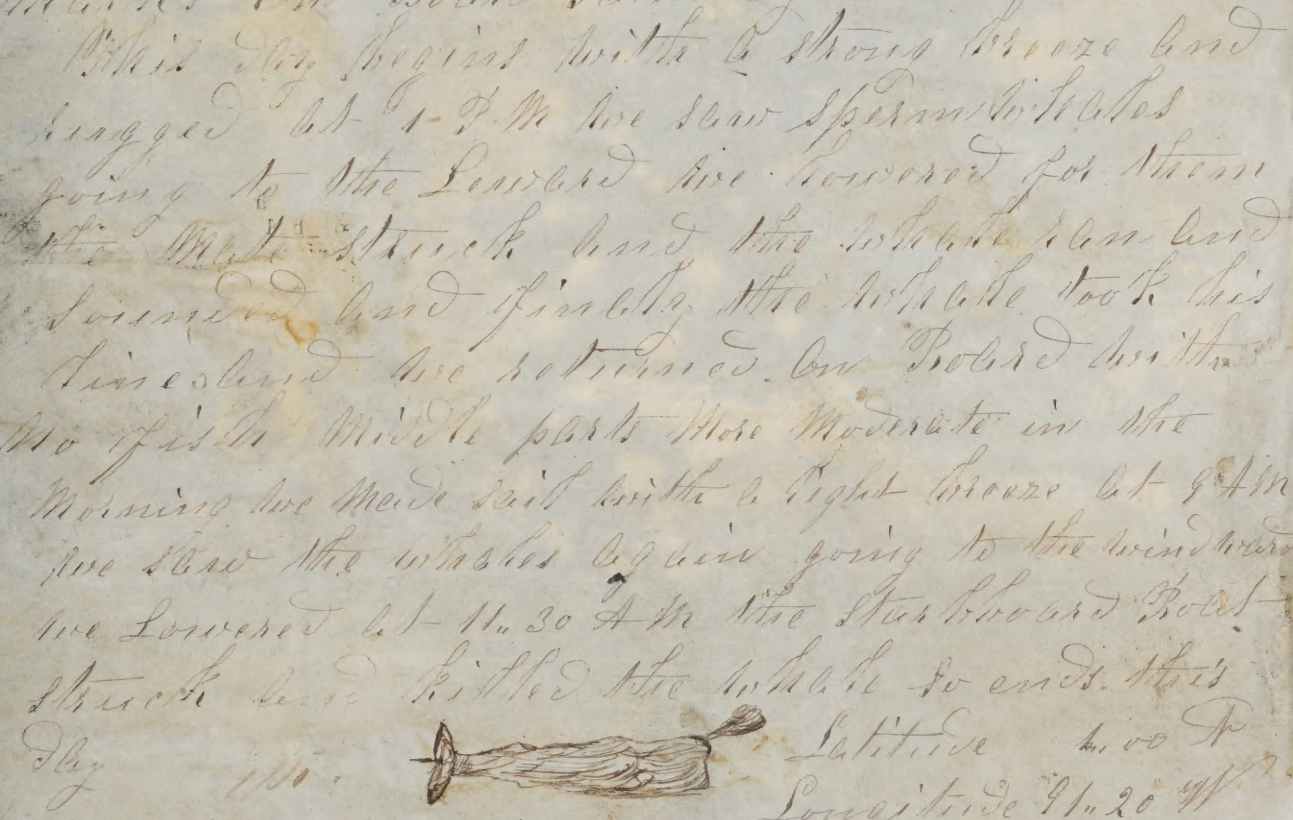 This day begins with a strong breeze and
rugged at 1 P.M we saw spermwhales
going to the Leward we Lowered for them
the Mate struck and the whale ran and
sounded and finely the whale took his
line and we returned on Board with
no fish Middle parts More Moderate in the
Morning we Made sail with a light breeze at 9 AM
we saw the whales again going to the windward
we Lowered at 11"30 AM the starbboard Boat
struck and killed the whale so ends this
day
Latitude
Longitude 91"20 W